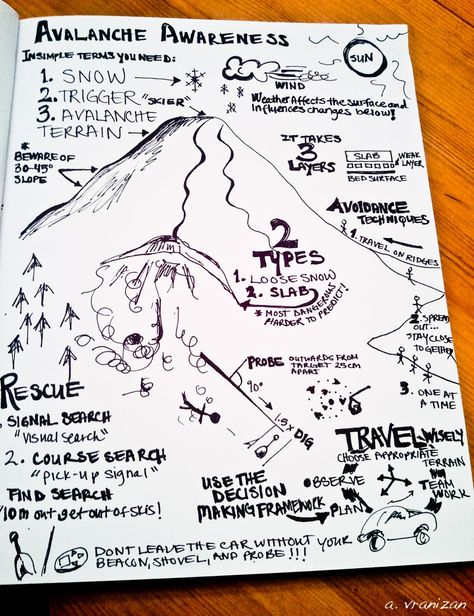 AVALANCHE AWARENESS
IN SIMPLE TERMS YOU NEED:
1. SNOW
2. TRIGGER "SKIER"
3. AVALANCHE
TERRAIN
* BEWARE OF
30-45°
SLOPE
SUN
WIND
Weather Affects the surface and
influences changes below!
IT TAKES
3
LAYERS
SLAB
WEAK
LAYER
BED SURFACE
AVOIDANCE
TECHNIQUES
1. TRAVEL ON RIDGES
2. SPREAD
OUT...
STAY CLOSE
TOGETHER
3. ONE AT
A TIME
2
TYPES
1. LOOSE SNOW
2. SLAB
* MOST DANGEROUS
HARDER TO PREDICT!
PROBE OUTWARDS FROM
TARGET 25CM
APART
90°
1.5x DIG
RESCUE
. SIGNAL SEARCH
"visual search"
2. COURSE SEARCH
"pick-up signal"
FIND SEARCH
10 m out get out of skis!
TRAVEL WISELY
CHOOSE APPROPRIATE
TERRAIN
OBSERVE
TEAM
WORK
PLAN
USE THE
DECISION
MAKING FRAMEWORK
DONT LEAVE THE CAR WITHOUT YOUR
BEACON, SHOVEL, AND PROBE!!!
a. vranizan